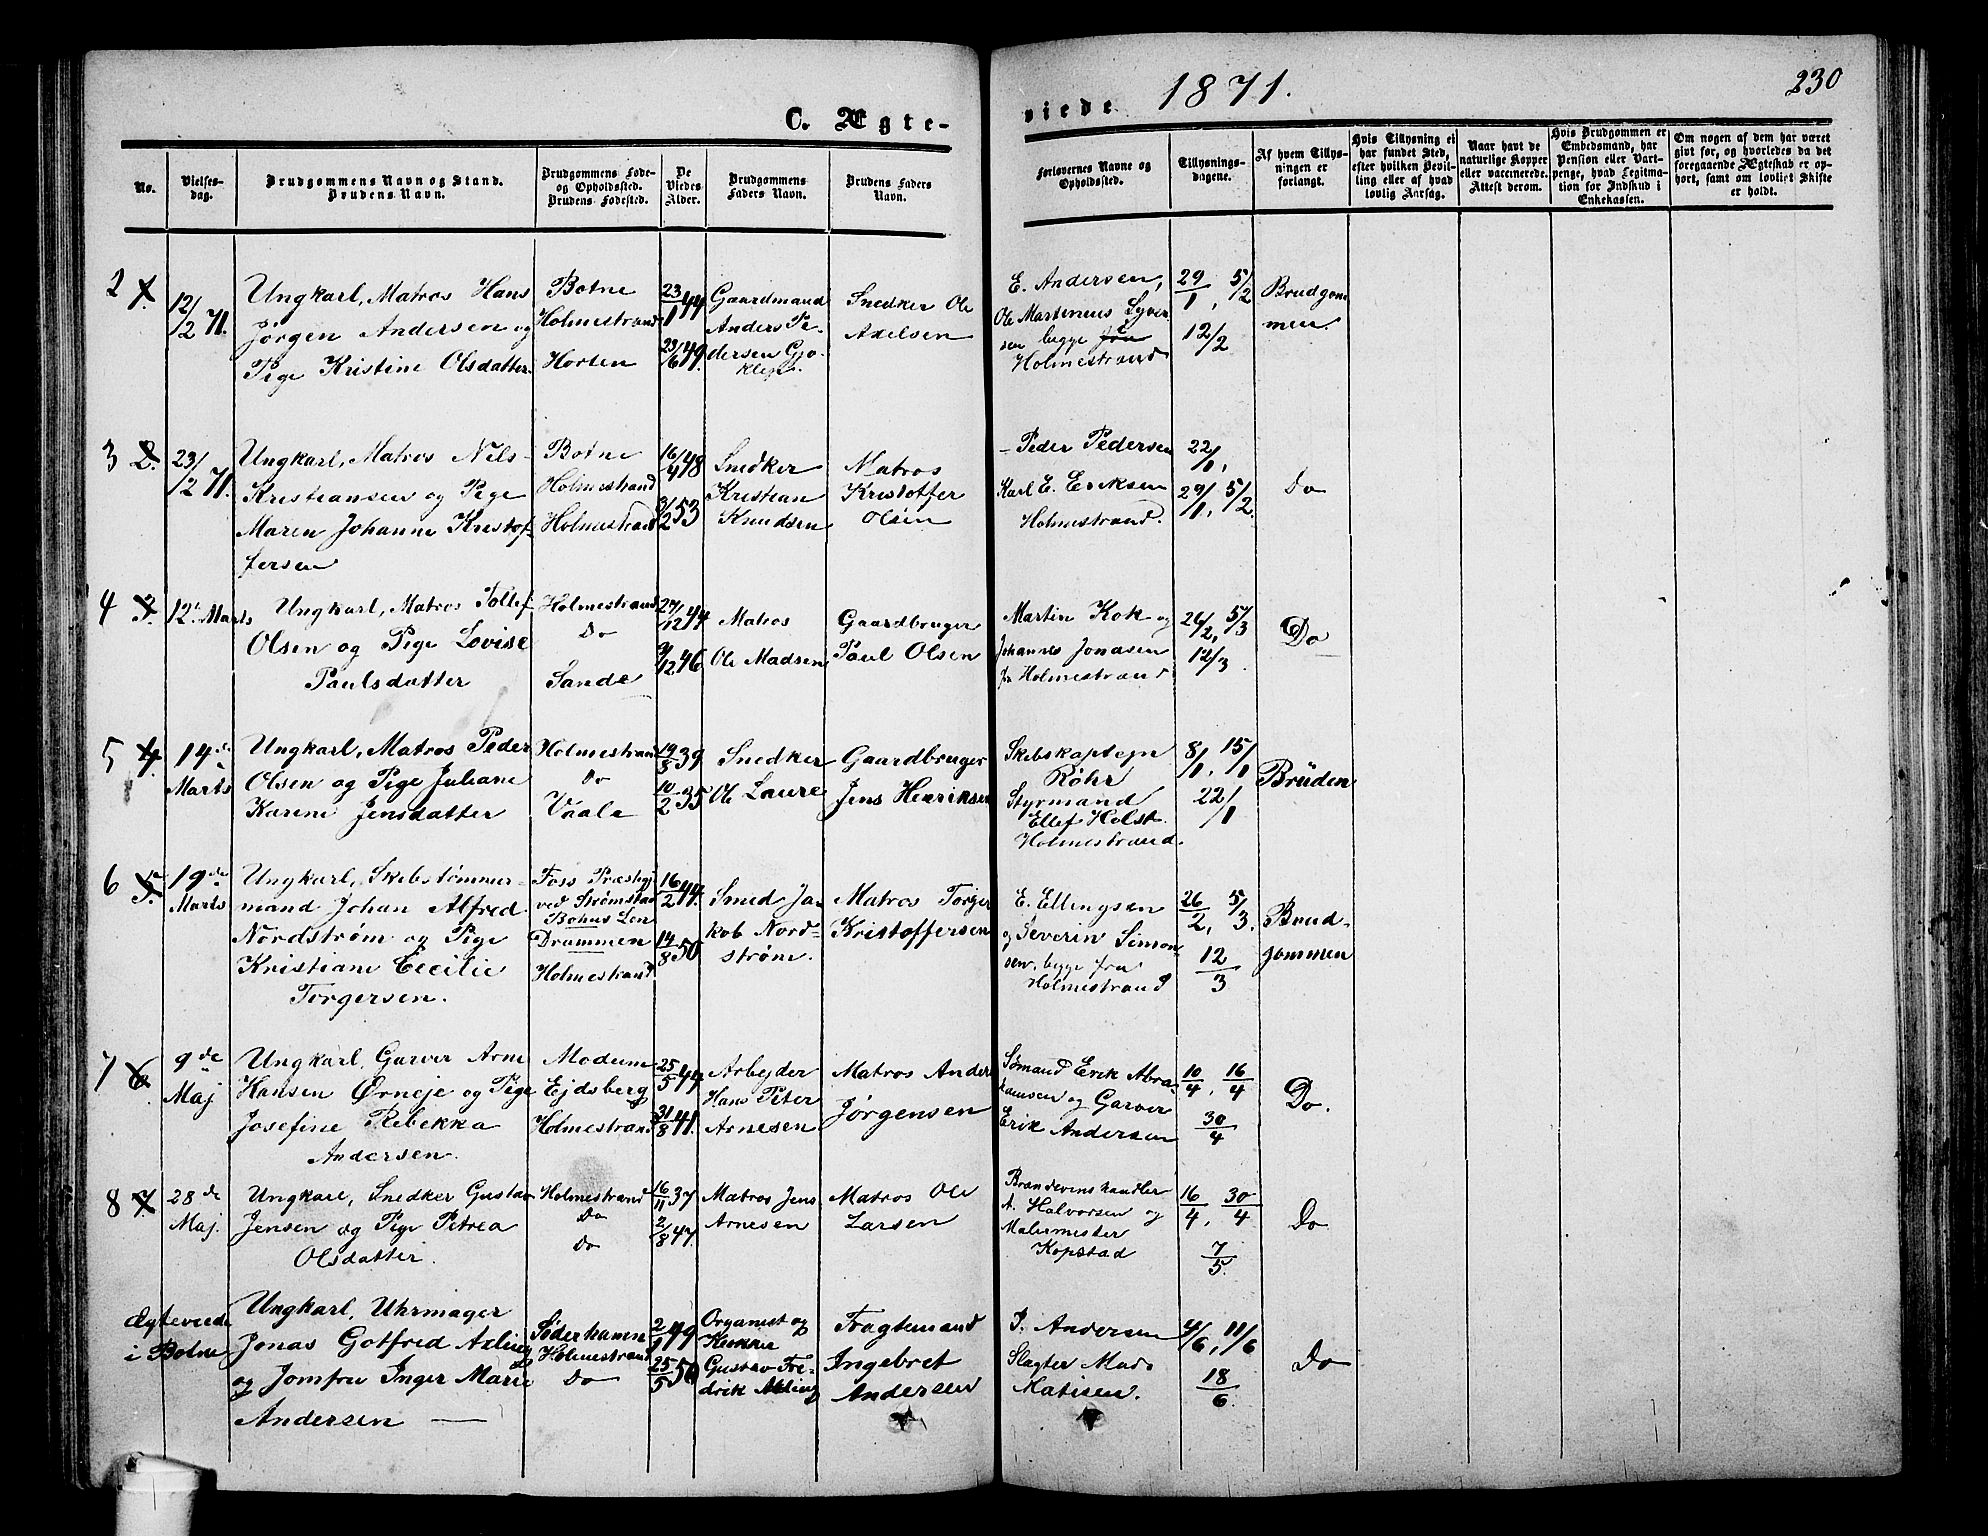 C. Ægte-
viede 1871. 230
No.
Vielses-
dag.
Brudgommens Navn og Stand.
Brudens Navn.
Brudgommens Føde-
og Opholdssted.
Brudens Fødested.
De
Viedes
Alder.
Brudgommens
Faders Navn.
Brudens Faders
Navn.
Forlovernes Navne og
Opholdssted.
Tillysnings-
dagene.
Af hvem Tillys-
ningen er
forlangt.
Hvis Tillysning ei
har fundet Sted,
efter hvilken Bevil-
ling eller af hvad
lovlig Aarsag.
Naar havt de
naturlige Kopper
eller vaccinerede.
Attest derom.
Hvis Brudgommen er
Embedsmand, har
Pension eller Vart-
penge, hvad Legitima-
tion for Indskud i
Enkekassen.
Om nogen af dem har været
gift før, og hvorledes da det
foregaaende Ægteskab er op-
hørt, samt om lovligt Skifte
er holdt.
2 1.
12/2 71.
Ungkarl, Matros Hans
Jørgen Andersen og
Pige Kristine Olsdatter.
Botne
Holmestrand
Horten
23/1 44
23/6 49.
Gaardmand
Anders Pe-
dersen Gjø-
klep.
Snedker Ole
Axelsen
E. Andersen,
Ole Martenius Syver
sen begge fra
Holmestrand
29/1, 5/2
12/2
Brudgom
men.
3 2.
23/2 71.
Ungkarl, Matros Nils
Kristiansen og Pige
Maren Johanne Kristof-
fersen
Botne
Holmestrand
Holmestrand
16/4 48
3/2 53
Snedker
Kristian
Knudsen
Matros
Kristoffer
Olsen
Peder Pedersen
Karl E. Eriksen
Holmestrand.
22/1,
29/1, 5/2.
Do
4 3.
12te Marts
Ungkarl, Matros Tollef
Olsen og Pige Lovise
Paulsdatter
Holmestrand
Do
Sande
27/12 44
9/12 46
Matros
Ole Madsen
Gaardbruger
Paul Olsen
Martin Kok og
Johannes Jonasen
fra Holmestrand
26/2, 5/3
12/3
Do
5 4.
14de
Marts
Ungkarl, Matros Peder
Olsen og Pige Juliane
Karine Jensdatter
Holmestrand
Do
Vaale
19/5 39
10/2 35
Snedker
Ole Laure
Gaardbruger
Jens Henriksen
Skibskaptejn
Røhr
Styrmand
Ellef Holst.
Holmestrand.
8/1, 15/1
22/1
Bruden
6 5.
19de
Marts
Ungkarl, Skibstømmer-
mand Johan Alfred
Nordstrøm og Pige
Kristiane Cecilie
Torgersen.
Foss Præstegj
ved Strømstad
Bohus Len
Drammen
Holmestrand.
16/2 44.
14/8 50
Smed Ja
kob Nord-
strøm.
Matros Torger
Kristoffersen
E. Ellingsen
og Severin Simon-
sen, begge fra
Holmestrand
26/2, 5/3.
12/3
Brud-
gommen
7 6.
9de
Maj
Ungkarl, Garver Arne
Hansen Ørneje og Pige
Josefine Rebekka
Andersen.
Modum
Ejdsberg
Holmestrand
25/5 44
31/8 41.
Arbejder
Hans Peter
Arnesen
Matros Anders
Jørgensen
Sømand Erik Abra-
hamsen og Garver
Erik Andersen
10/4, 16/4
30/4
Do.
8 7.
28de
Maj.
Ungkarl, Snedker Gustav
Jensen og Pige Petrea
Olsdatter.
Holmestrand
Do
Do
16/11 37
2/8 47.
Matros Jens
Arnesen
Matros Ole
Larsen
Brændevinshandler
A. Halvorsen og
Malermester
Kopstad
16/4, 30/4
7/5.
Do
Ægteviede
i Botne
Ungkarl, Uhrmager
Jonas Gotfred Axling
og Jomfru Inger Marie
Andersen
Søderhamn
Holmestrand
Do
2/1 49
25/5 50
Organist og
Gustav Fre-
drik Axling
Fragtemand
Ingebret
Andersen
P. Andersen
Slagter Mads
Matisen.
4/6, 11/6
18/6.
Do